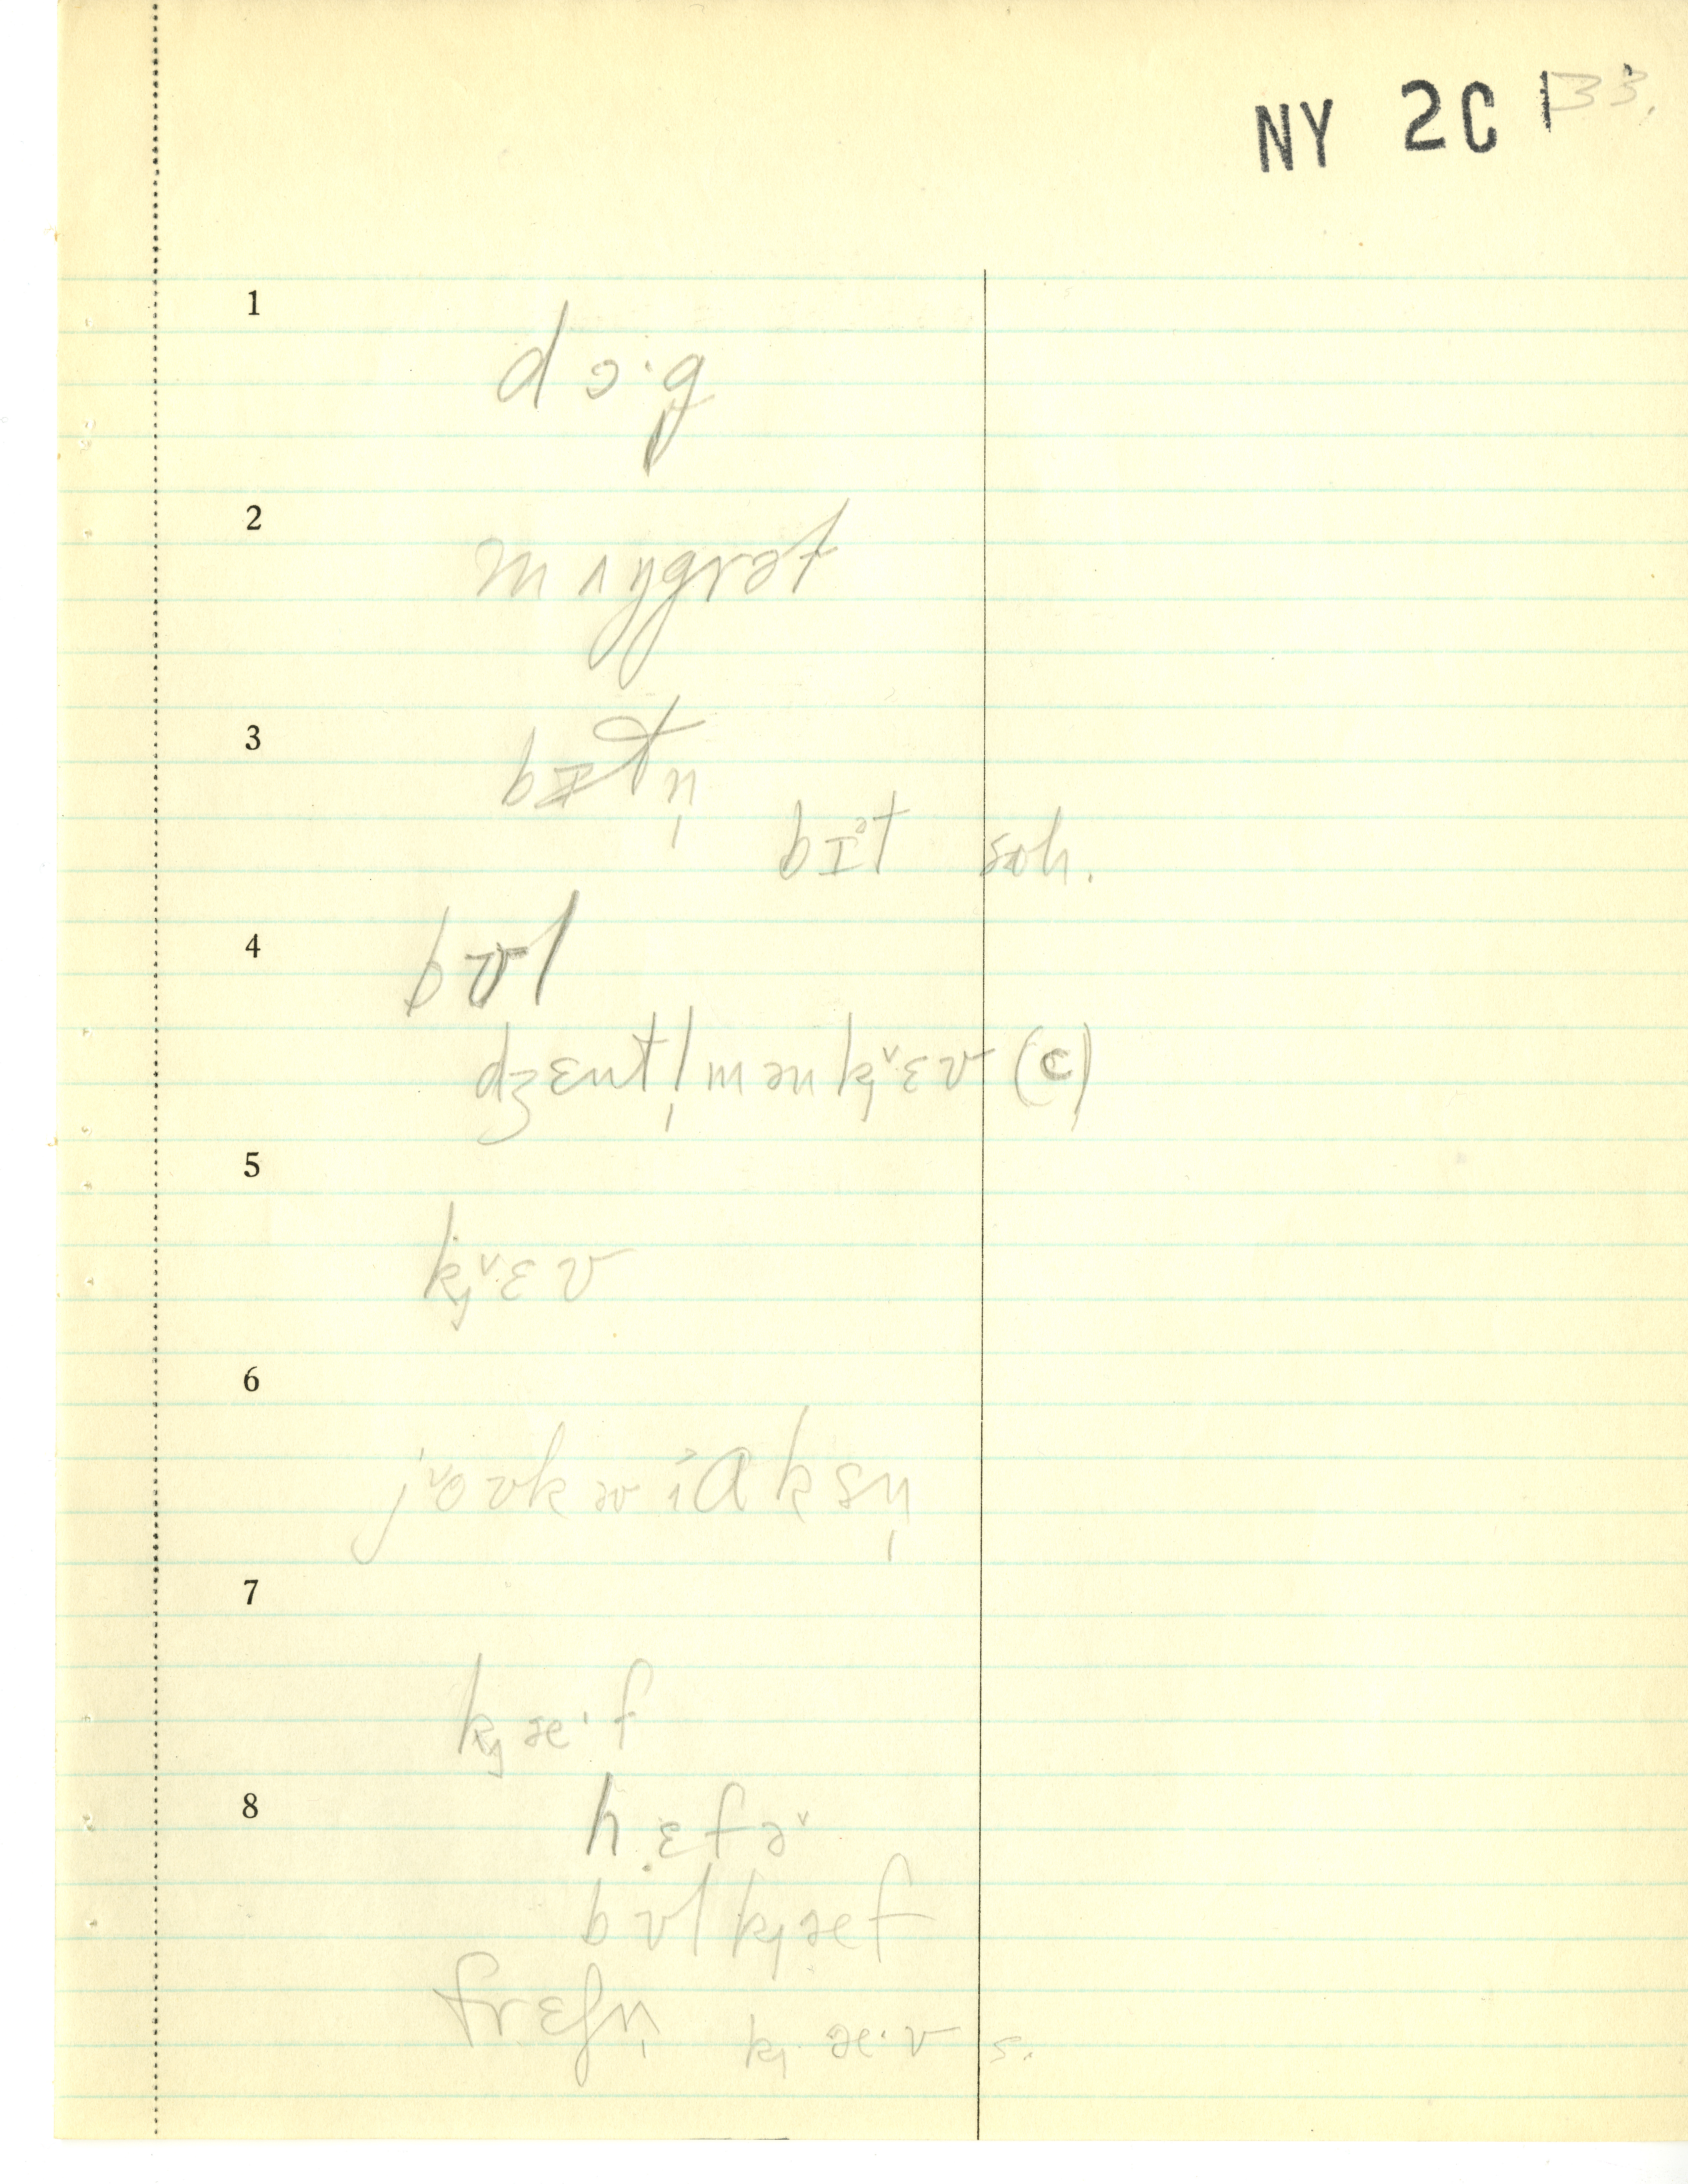 NY 2C 1 33.
1
dɔ·g
2
mʌŋgrət
3
bɪtn̩
bɪᵊt soh.
4
bʊl
dʒɛntl̩mənkj˅ɛʊ (c)
5
kj˅ɛʊ
6
j˅oʊkwɪɑksn̩
7
kjæ·f
8
hɛfə˅
bʊlkjæf
frɛʃn̩ kjæ·v s.